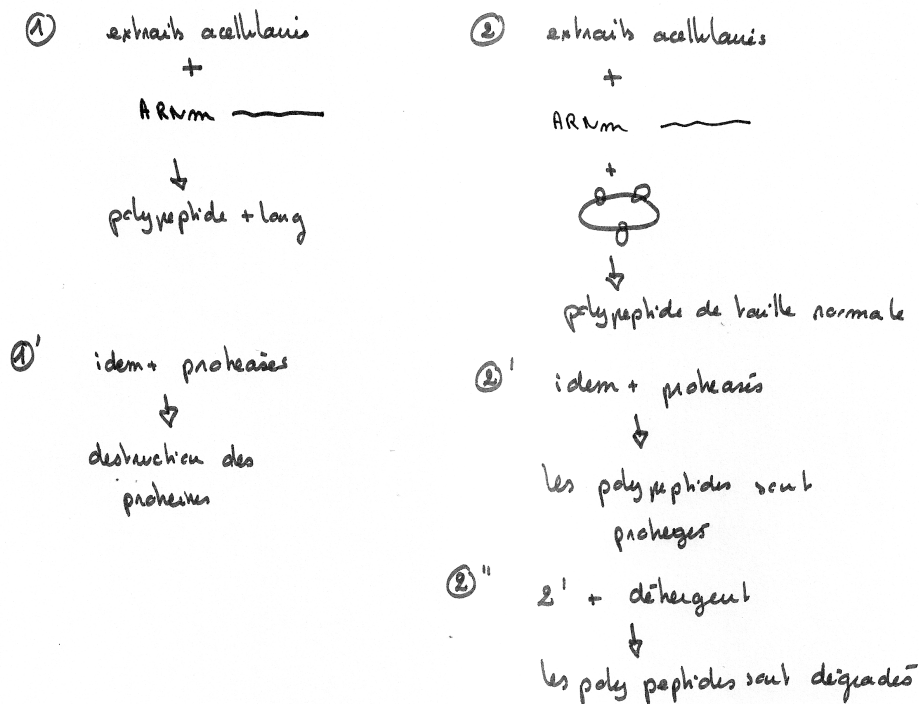 ① extraits acellulaires
+
ARNm
polypeptide + long
①' idem + protéases
destruction des
protéines
② extraits acellulaires
+
ARNm
+
polypeptide de taille normale
②' idem + protéases
les polypeptides sont
protégés
②" 2' + détergent
les polypeptides sont dégradés